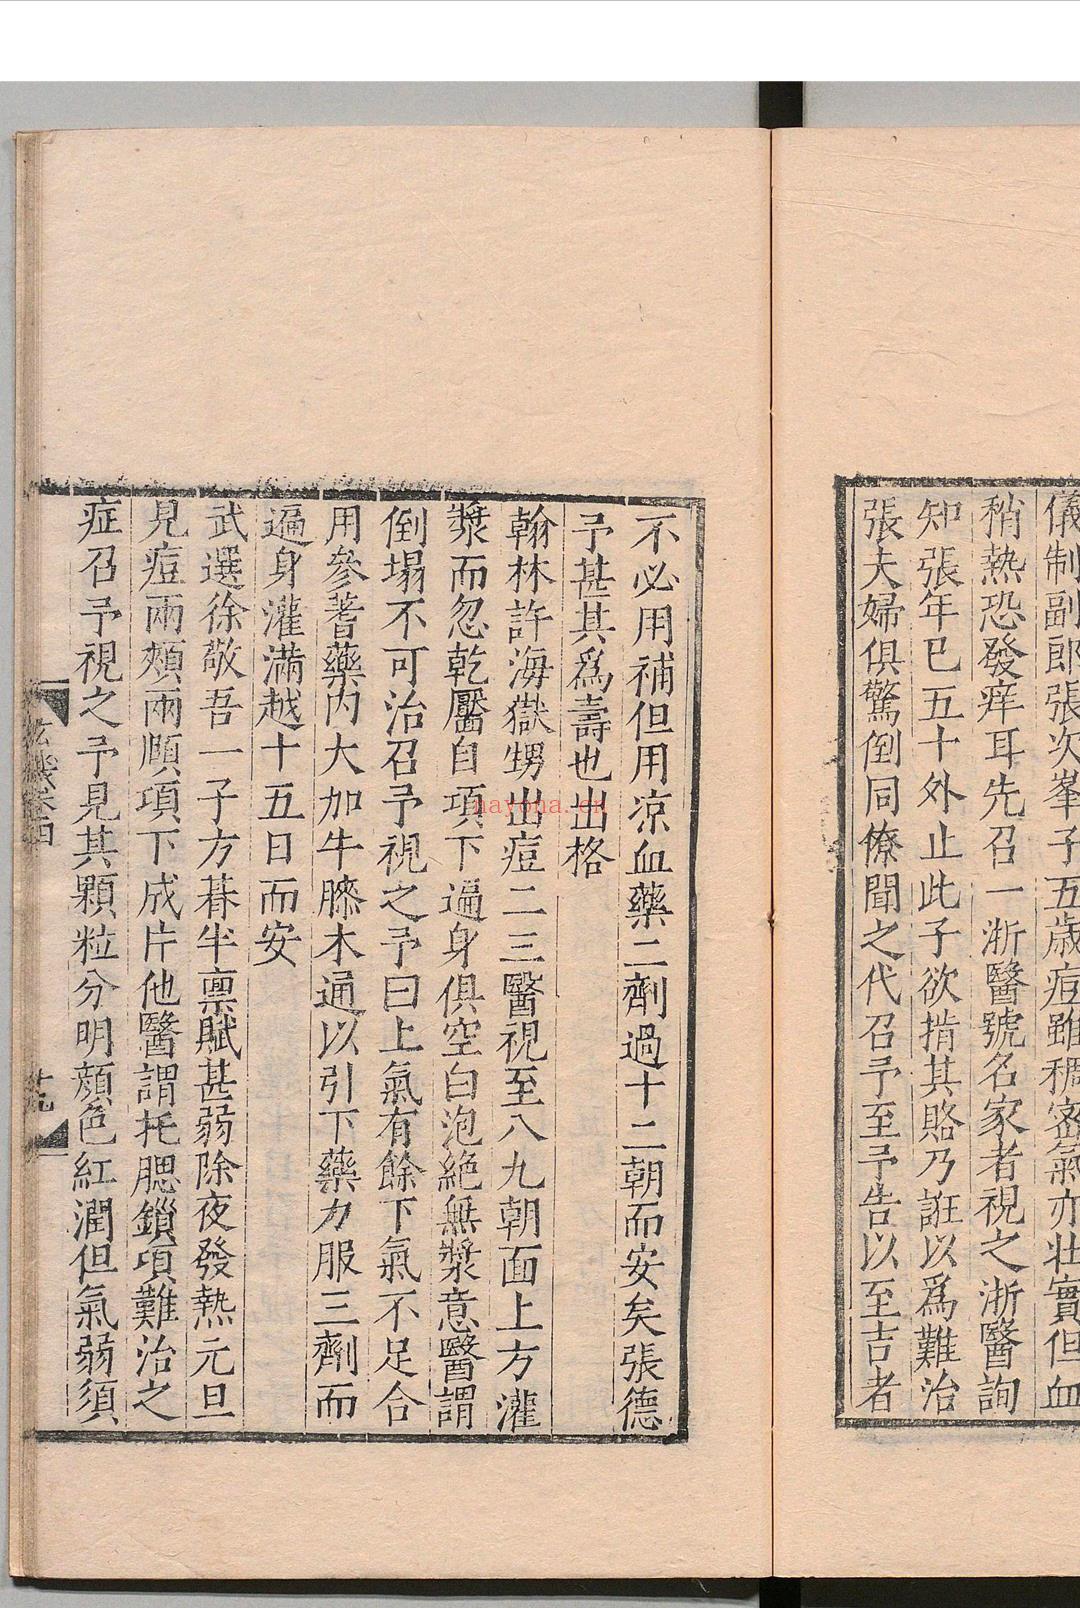 儀制副郎張次峯子五歲痘雖稠密氣亦壯實但血
稍熱恐發痒耳先召一浙醫號名家者視之浙醫詢
知張年已五十外止此子欲掯其賂乃誑以爲難治
張夫婦俱驚倒同僚聞之代召予至予告以至吉者
不必用補但用凉血藥二劑過十二朝而安矣張德
予甚其爲壽也出格
翰林許海嶽甥出痘二三醫視至八九朝面上方灌
漿而忽乾靨自項下遍身俱空白泡絶無漿意醫謂
倒塌不可治召予視之予曰上氣有餘下氣不足合
用參蓍藥内大加牛膝木通以引下藥力服三劑而
遍身灌滿越十五日而安
武選徐敬吾一子方朞半禀賦甚弱除夜發熱元旦
見痘兩頰兩順項下成片他醫謂托腮鎖項難治之
症召予視之予見其顆粒分明顔色紅潤但氣弱須
玄機卷四
廿九
nayona.cn